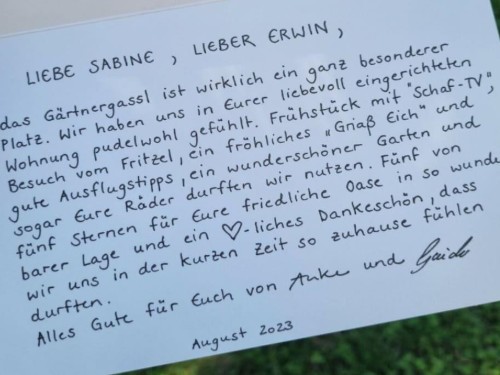 LIEBE SABINE, LIEBER ERWIN,
das Gärtnergassl ist wirklich ein ganz besonderer
Platz. Wir haben uns in Eurer liebevoll eingerichteten
Wohnung pudelwohl gefühlt. Frühstück mit "Schaf-TV",
Besuch vom Fritzel, ein fröhliches „Griaß Eich" und,
gute Ausflugstipps, ein wunderschöner Garten und
sogar Eure Räder durften wir nutzen. Fünf von
fünf Sternen für Eure friedliche Oase in so wunder
barer Lage und ein ♡-liches Dankeschön, dass
wir uns in der kurzen Zeit so zuhause fühlen
durften.
Alles Gute für Euch von Anke und Guido
August 2023